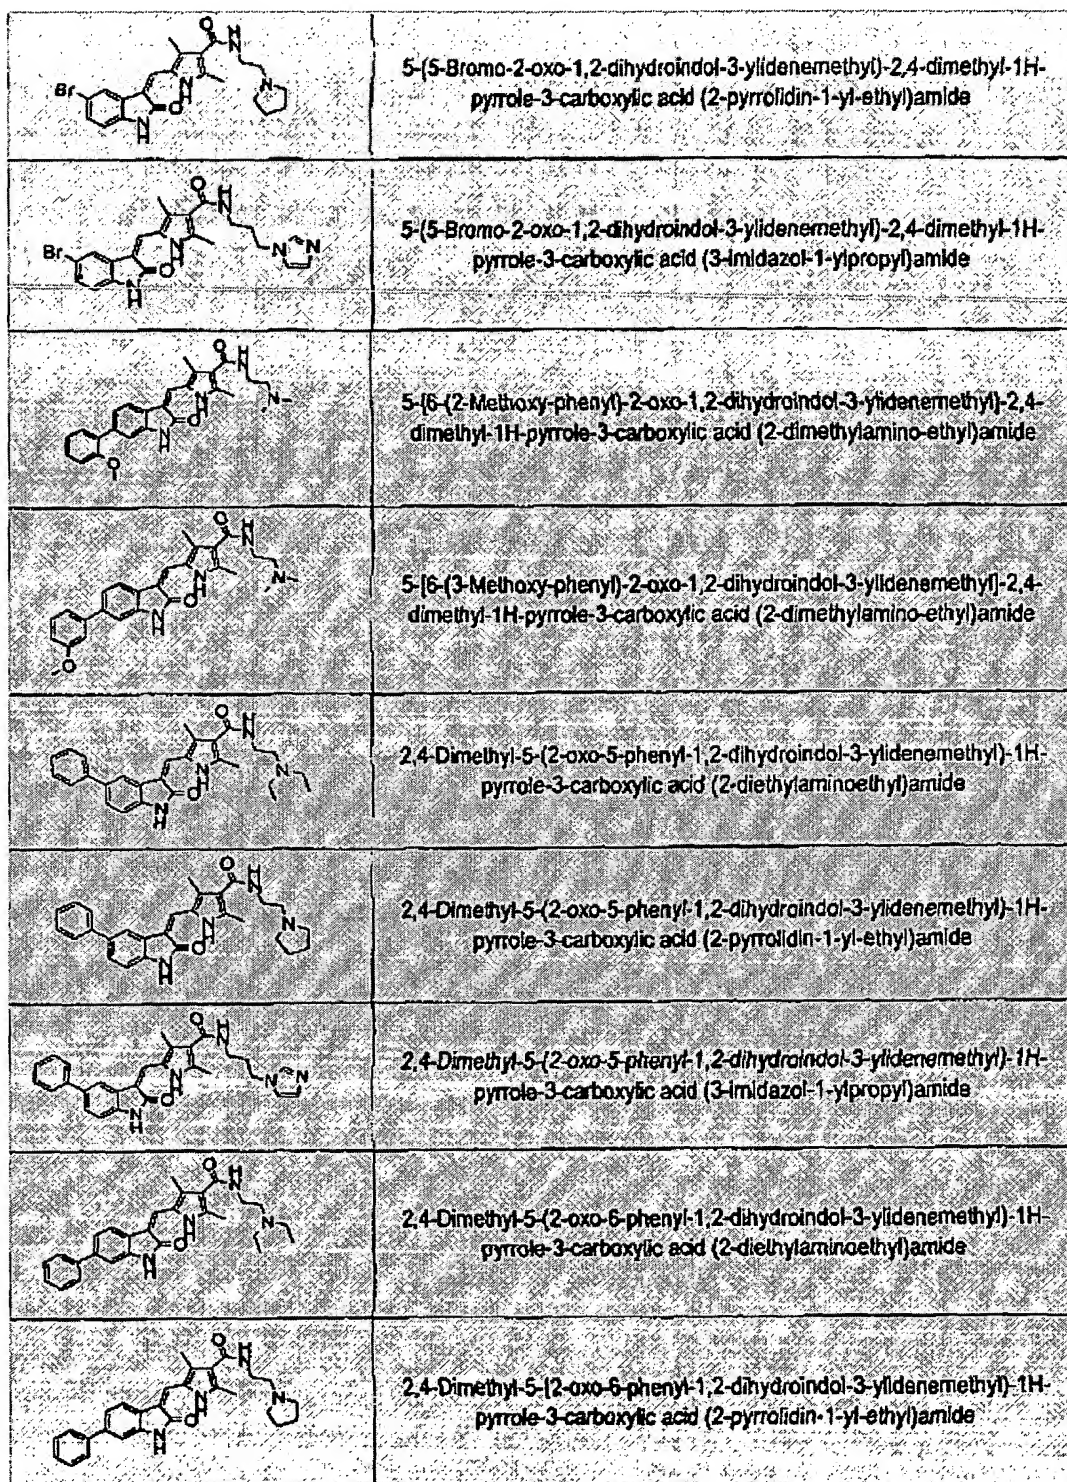 5-(5-Bromo-2-oxo-1,2-dihydroindol-3-ylidenemethyl)-2,4-dimethyl-1H-
pyrrole-3-carboxylic acid (2-pyrrolidin-1-yl-ethyl)amide
5-(5-Bromo-2-oxo-1,2-dihydroindol-3-ylidenemethyl)-2,4-dimethyl-1H-
pyrrole-3-carboxylic acid (3-imidazol-1-ylpropyl)amide
5-[6-(2-Methoxy-phenyl)-2-oxo-1,2-dihydroindol-3-ylidenemethyl]-2,4-
dimethyl-1H-pyrrole-3-carboxylic acid (2-dimethylamino-ethyl)amide
5-[6-(3-Methoxy-phenyl)-2-oxo-1,2-dihydroindol-3-ylidenemethyl]-2,4-
dimethyl-1H-pyrrole-3-carboxylic acid (2-dimethylamino-ethyl)amide
2,4-Dimethyl-5-(2-oxo-5-phenyl-1,2-dihydroindol-3-ylidenemethyl)-1H-
pyrrole-3-carboxylic acid (2-diethylaminoethyl)amide
2,4-Dimethyl-5-(2-oxo-5-phenyl-1,2-dihydroindol-3-ylidenemethyl)-1H-
pyrrole-3-carboxylic acid (2-pyrrolidin-1-yl-ethyl)amide
2,4-Dimethyl-5-(2-oxo-5-phenyl-1,2-dihydroindol-3-ylidenemethyl)-1H-
pyrrole-3-carboxylic acid (3-imidazol-1-ylpropyl)amide
2,4-Dimethyl-5-(2-oxo-6-phenyl-1,2-dihydroindol-3-ylidenemethyl)-1H-
pyrrole-3-carboxylic acid (2-diethylaminoethyl)amide
2,4-Dimethyl-5-(2-oxo-6-phenyl-1,2-dihydroindol-3-ylidenemethyl)-1H-
pyrrole-3-carboxylic acid (2-pyrrolidin-1-yl-ethyl)amide